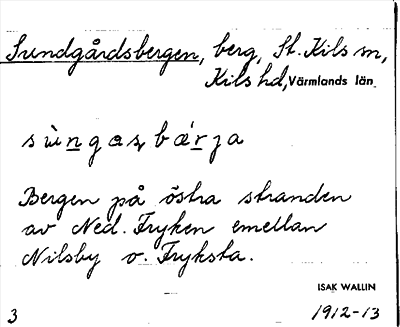 Sundgårdsbergen, berg, St. Kils sn,
Kils hd, Värmlands län
sùngasbárja
Bergen på östra stranden
av Ned. Fryken emellan
Nilsby o. Fryksta.
ISAK WALLIN
3 1912-13